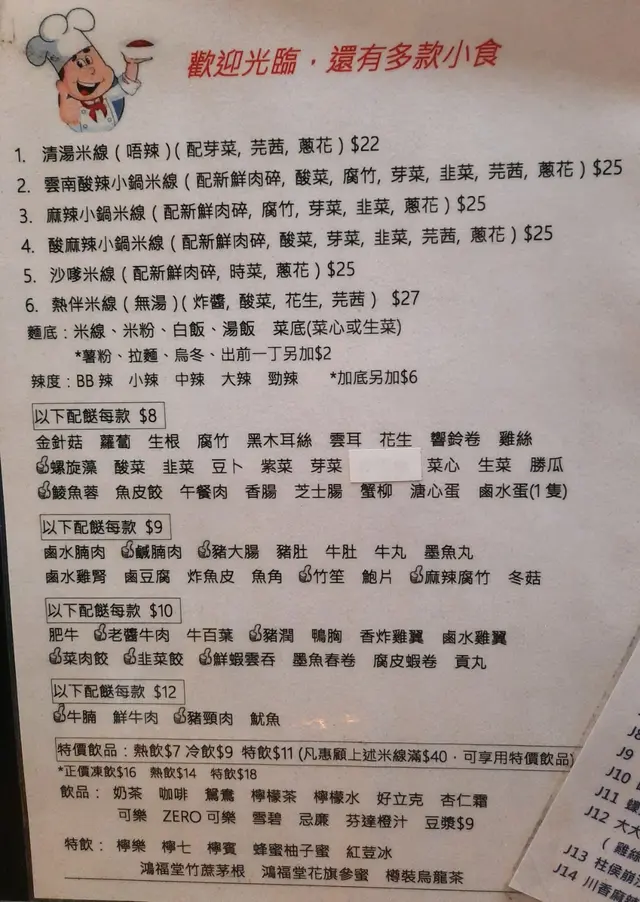 歡迎光臨，還有多款小食
1. 清湯米線 ( 唔辣 ) ( 配芽菜, 芫茜, 蔥花 ) $22
2. 雲南酸辣小鍋米線 ( 配新鮮肉碎, 酸菜, 腐竹, 芽菜, 韭菜, 芫茜, 蔥花 ) $25
3. 麻辣小鍋米線 ( 配新鮮肉碎, 腐竹, 芽菜, 韭菜, 蔥花 ) $25
4. 酸麻辣小鍋米線 ( 配新鮮肉碎, 酸菜, 芽菜, 韭菜, 芫茜, 蔥花 ) $25
5. 沙嗲米線 ( 配新鮮肉碎, 時菜, 蔥花 ) $25
6. 熱伴米線 ( 無湯 ) ( 炸醬, 酸菜, 花生, 芫茜 ) $27
麵底 : 米線、米粉、白飯、湯飯 菜底(菜心或生菜)
*薯粉、拉麵、烏冬、出前一丁另加$2
辣度 : BB 辣 小辣 中辣 大辣 勁辣 *加底另加$6
以下配餸每款 $8
金針菇 蘿蔔 生根 腐竹 黑木耳絲 雲耳 花生 響鈴卷 雞絲
螺旋藻 酸菜 韭菜 豆卜 紫菜 芽菜 菜心 生菜 勝瓜
鯪魚蓉 魚皮餃 午餐肉 香腸 芝士腸 蟹柳 溏心蛋 鹵水蛋(1 隻)
以下配餸每款 $9
鹵水腩肉 鹹腩肉 豬大腸 豬肚 牛肚 牛丸 墨魚丸
鹵水雞腎 鹵豆腐 炸魚皮 魚角 竹笙 鮑片 麻辣腐竹 冬菇
以下配餸每款 $10
肥牛 老醬牛肉 牛百葉 豬潤 鴨胸 香炸雞翼 鹵水雞翼
菜肉餃 韭菜餃 鮮蝦雲吞 墨魚春卷 腐皮蝦卷 貢丸
以下配餸每款 $12
牛腩 鮮牛肉 豬頸肉 魷魚
特價飲品 : 熱飲$7 冷飲$9 特飲$11 (凡惠顧上述米線滿$40，可享用特價飲品)
*正價凍飲$16 熱飲$14 特飲$18
飲品 : 奶茶 咖啡 鴛鴦 檸檬茶 檸檬水 好立克 杏仁霜
可樂 ZERO 可樂 雪碧 忌廉 芬達橙汁 豆漿$9
特飲 : 檸樂 檸七 檸賓 蜂蜜柚子蜜 紅荳冰
鴻福堂竹蔗茅根 鴻福堂花旗參蜜 樽裝烏龍茶
J8
J9
J10
J11
J12 大
( 雞絲
J13 柱侯崩
J14 川香麻辣